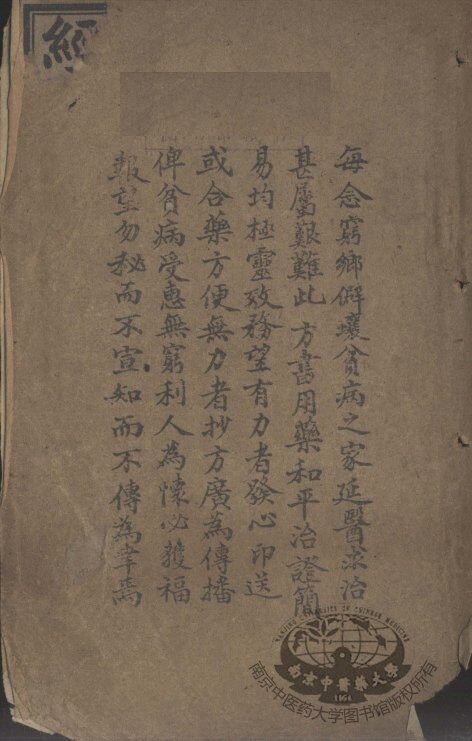 經
每念窮鄉僻壤貧病之家延醫求治
甚屬艱難此方書用藥和平治證簡
易均極靈效務望有力者發心印送
或合藥方便無力者抄方廣為傳播
俾貧病受惠無窮利人為懷必獲福
報望勿秘而不宣知而不傳為幸焉
NANJING UNIVERSITY OF CHINESE MEDICINE
南京中醫藥大學
1954
南京中医药大学图书馆版权所有